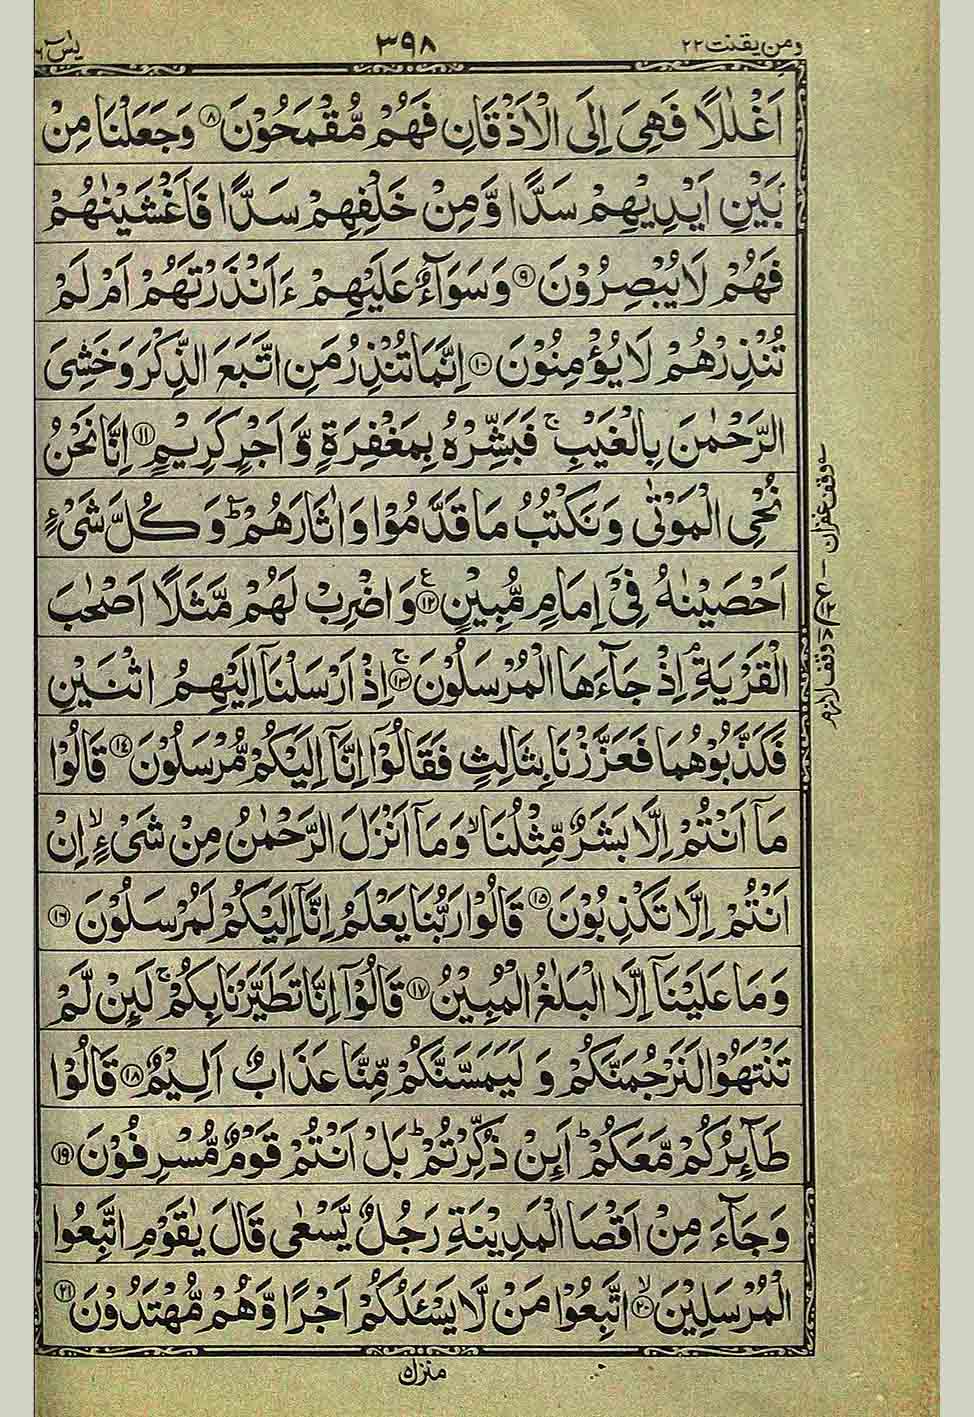 ومن يقنت ٢٢ ٣٩٨ يٰسٓ ٣٦
اَغْلٰلًا فَهِىَ اِلَى الْاَذْقَانِ فَهُمْ مُّقْمَحُوْنَ ۝٨ وَجَعَلْنَا مِنْۢ
بَيْنِ اَيْدِيْهِمْ سَدًّا وَّمِنْ خَلْفِهِمْ سَدًّا فَاَغْشَيْنٰهُمْ
فَهُمْ لَا يُبْصِرُوْنَ ۝٩ وَسَوَآءٌ عَلَيْهِمْ ءَاَنْذَرْتَهُمْ اَمْ لَمْ
تُنْذِرْهُمْ لَا يُؤْمِنُوْنَ ۝١٠ اِنَّمَا تُنْذِرُ مَنِ اتَّبَعَ الذِّكْرَ وَخَشِىَ
الرَّحْمٰنَ بِالْغَيْبِ ۚ فَبَشِّرْهُ بِمَغْفِرَةٍ وَّاَجْرٍ كَرِيْمٍ ۝١١ اِنَّا نَحْنُ
نُحْىِ الْمَوْتٰى وَنَكْتُبُ مَا قَدَّمُوْا وَاٰثَارَهُمْ ؕ وَكُلَّ شَىْءٍ
اَحْصَيْنٰهُ فِىْٓ اِمَامٍ مُّبِيْنٍ ۝١٢ ع وَاضْرِبْ لَهُمْ مَّثَلًا اَصْحٰبَ
الْقَرْيَةِ ۘ اِذْ جَآءَهَا الْمُرْسَلُوْنَ ۝١٣ ۚ اِذْ اَرْسَلْنَآ اِلَيْهِمُ اثْنَيْنِ
فَكَذَّبُوْهُمَا فَعَزَّزْنَا بِثَالِثٍ فَقَالُوْٓا اِنَّآ اِلَيْكُمْ مُّرْسَلُوْنَ ۝١٤ قَالُوْا
مَآ اَنْتُمْ اِلَّا بَشَرٌ مِّثْلُنَا ۙ وَمَآ اَنْزَلَ الرَّحْمٰنُ مِنْ شَىْءٍ ۙ اِنْ
اَنْتُمْ اِلَّا تَكْذِبُوْنَ ۝١٥ قَالُوْا رَبُّنَا يَعْلَمُ اِنَّآ اِلَيْكُمْ لَمُرْسَلُوْنَ ۝١٦
وَمَا عَلَيْنَآ اِلَّا الْبَلٰغُ الْمُبِيْنُ ۝١٧ قَالُوْٓا اِنَّا تَطَيَّرْنَا بِكُمْ ۚ لَئِنْ لَّمْ
تَنْتَهُوْا لَنَرْجُمَنَّكُمْ وَلَيَمَسَّنَّكُمْ مِّنَّا عَذَابٌ اَلِيْمٌ ۝١٨ قَالُوْا
طَآئِرُكُمْ مَّعَكُمْ ؕ اَئِنْ ذُكِّرْتُمْ ؕ بَلْ اَنْتُمْ قَوْمٌ مُّسْرِفُوْنَ ۝١٩
وَجَآءَ مِنْ اَقْصَا الْمَدِيْنَةِ رَجُلٌ يَّسْعٰى قَالَ يٰقَوْمِ اتَّبِعُوا
الْمُرْسَلِيْنَ ۝٢٠ ۙ اتَّبِعُوْا مَنْ لَّا يَسْئَلُكُمْ اَجْرًا وَّهُمْ مُّهْتَدُوْنَ ۝٢١
منزل ٥
وقف غفران
وقف لازم